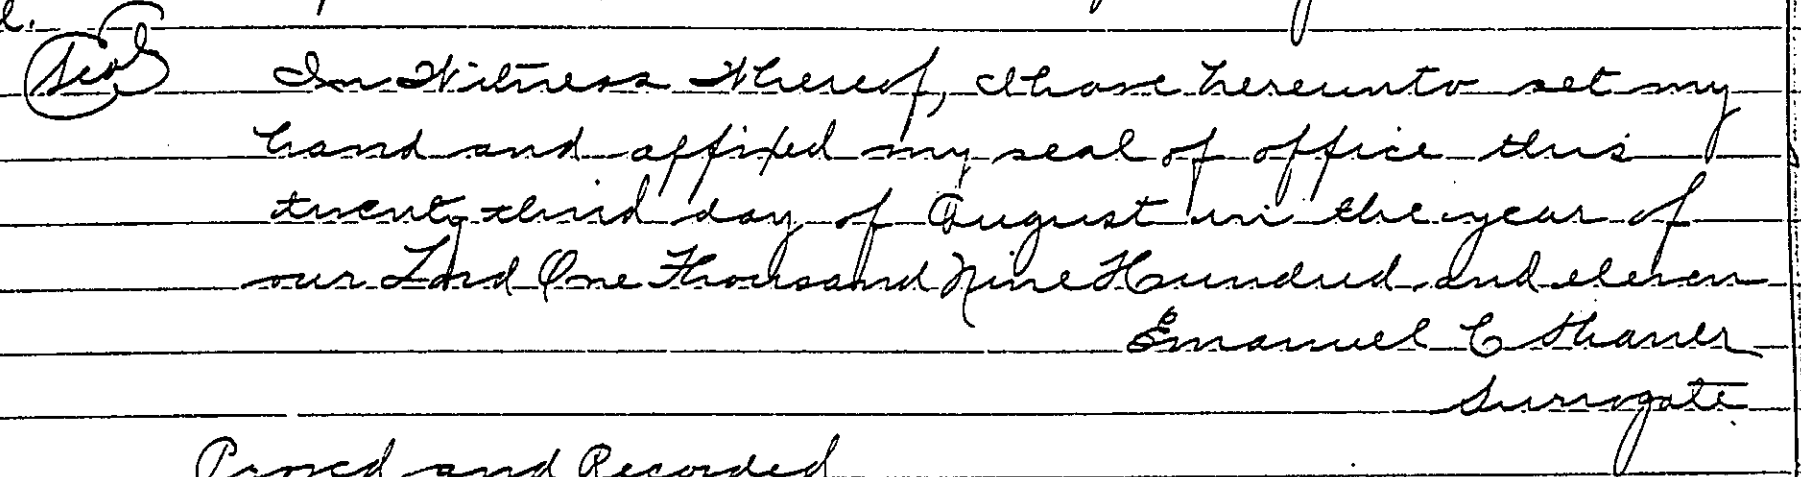 Seal In Witness Whereof, I have hereunto set my
hand and affixed my seal of office this
twenty third day of August in the year of
our Lord One Thousand Nine Hundred and eleven
Emanuel C Shaner
Surrogate
Proved and Recorded